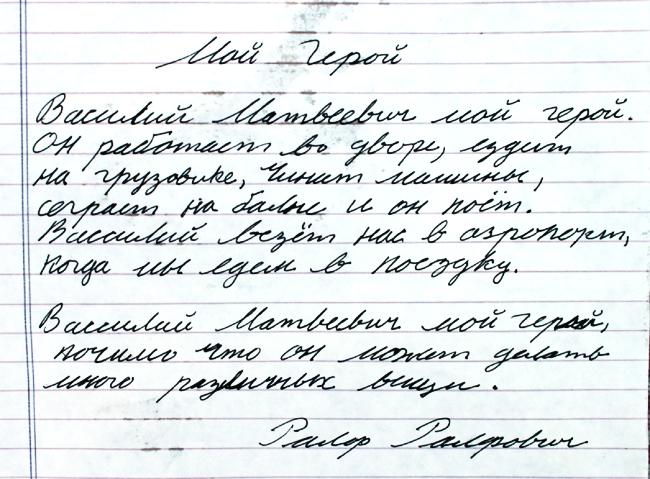 Мой Герой
Василий Матвеевич мой герой.
Он работает во дворе, ездит
на грузовике, чинит машины,
сеграет на балне и он поёт.
Василий везёт нас в аэропорт,
когда мы едем в поездку.
Василий Матвеевич мой герой,
почимо что он может делать
много различных вищи.
Ралф Ралфович